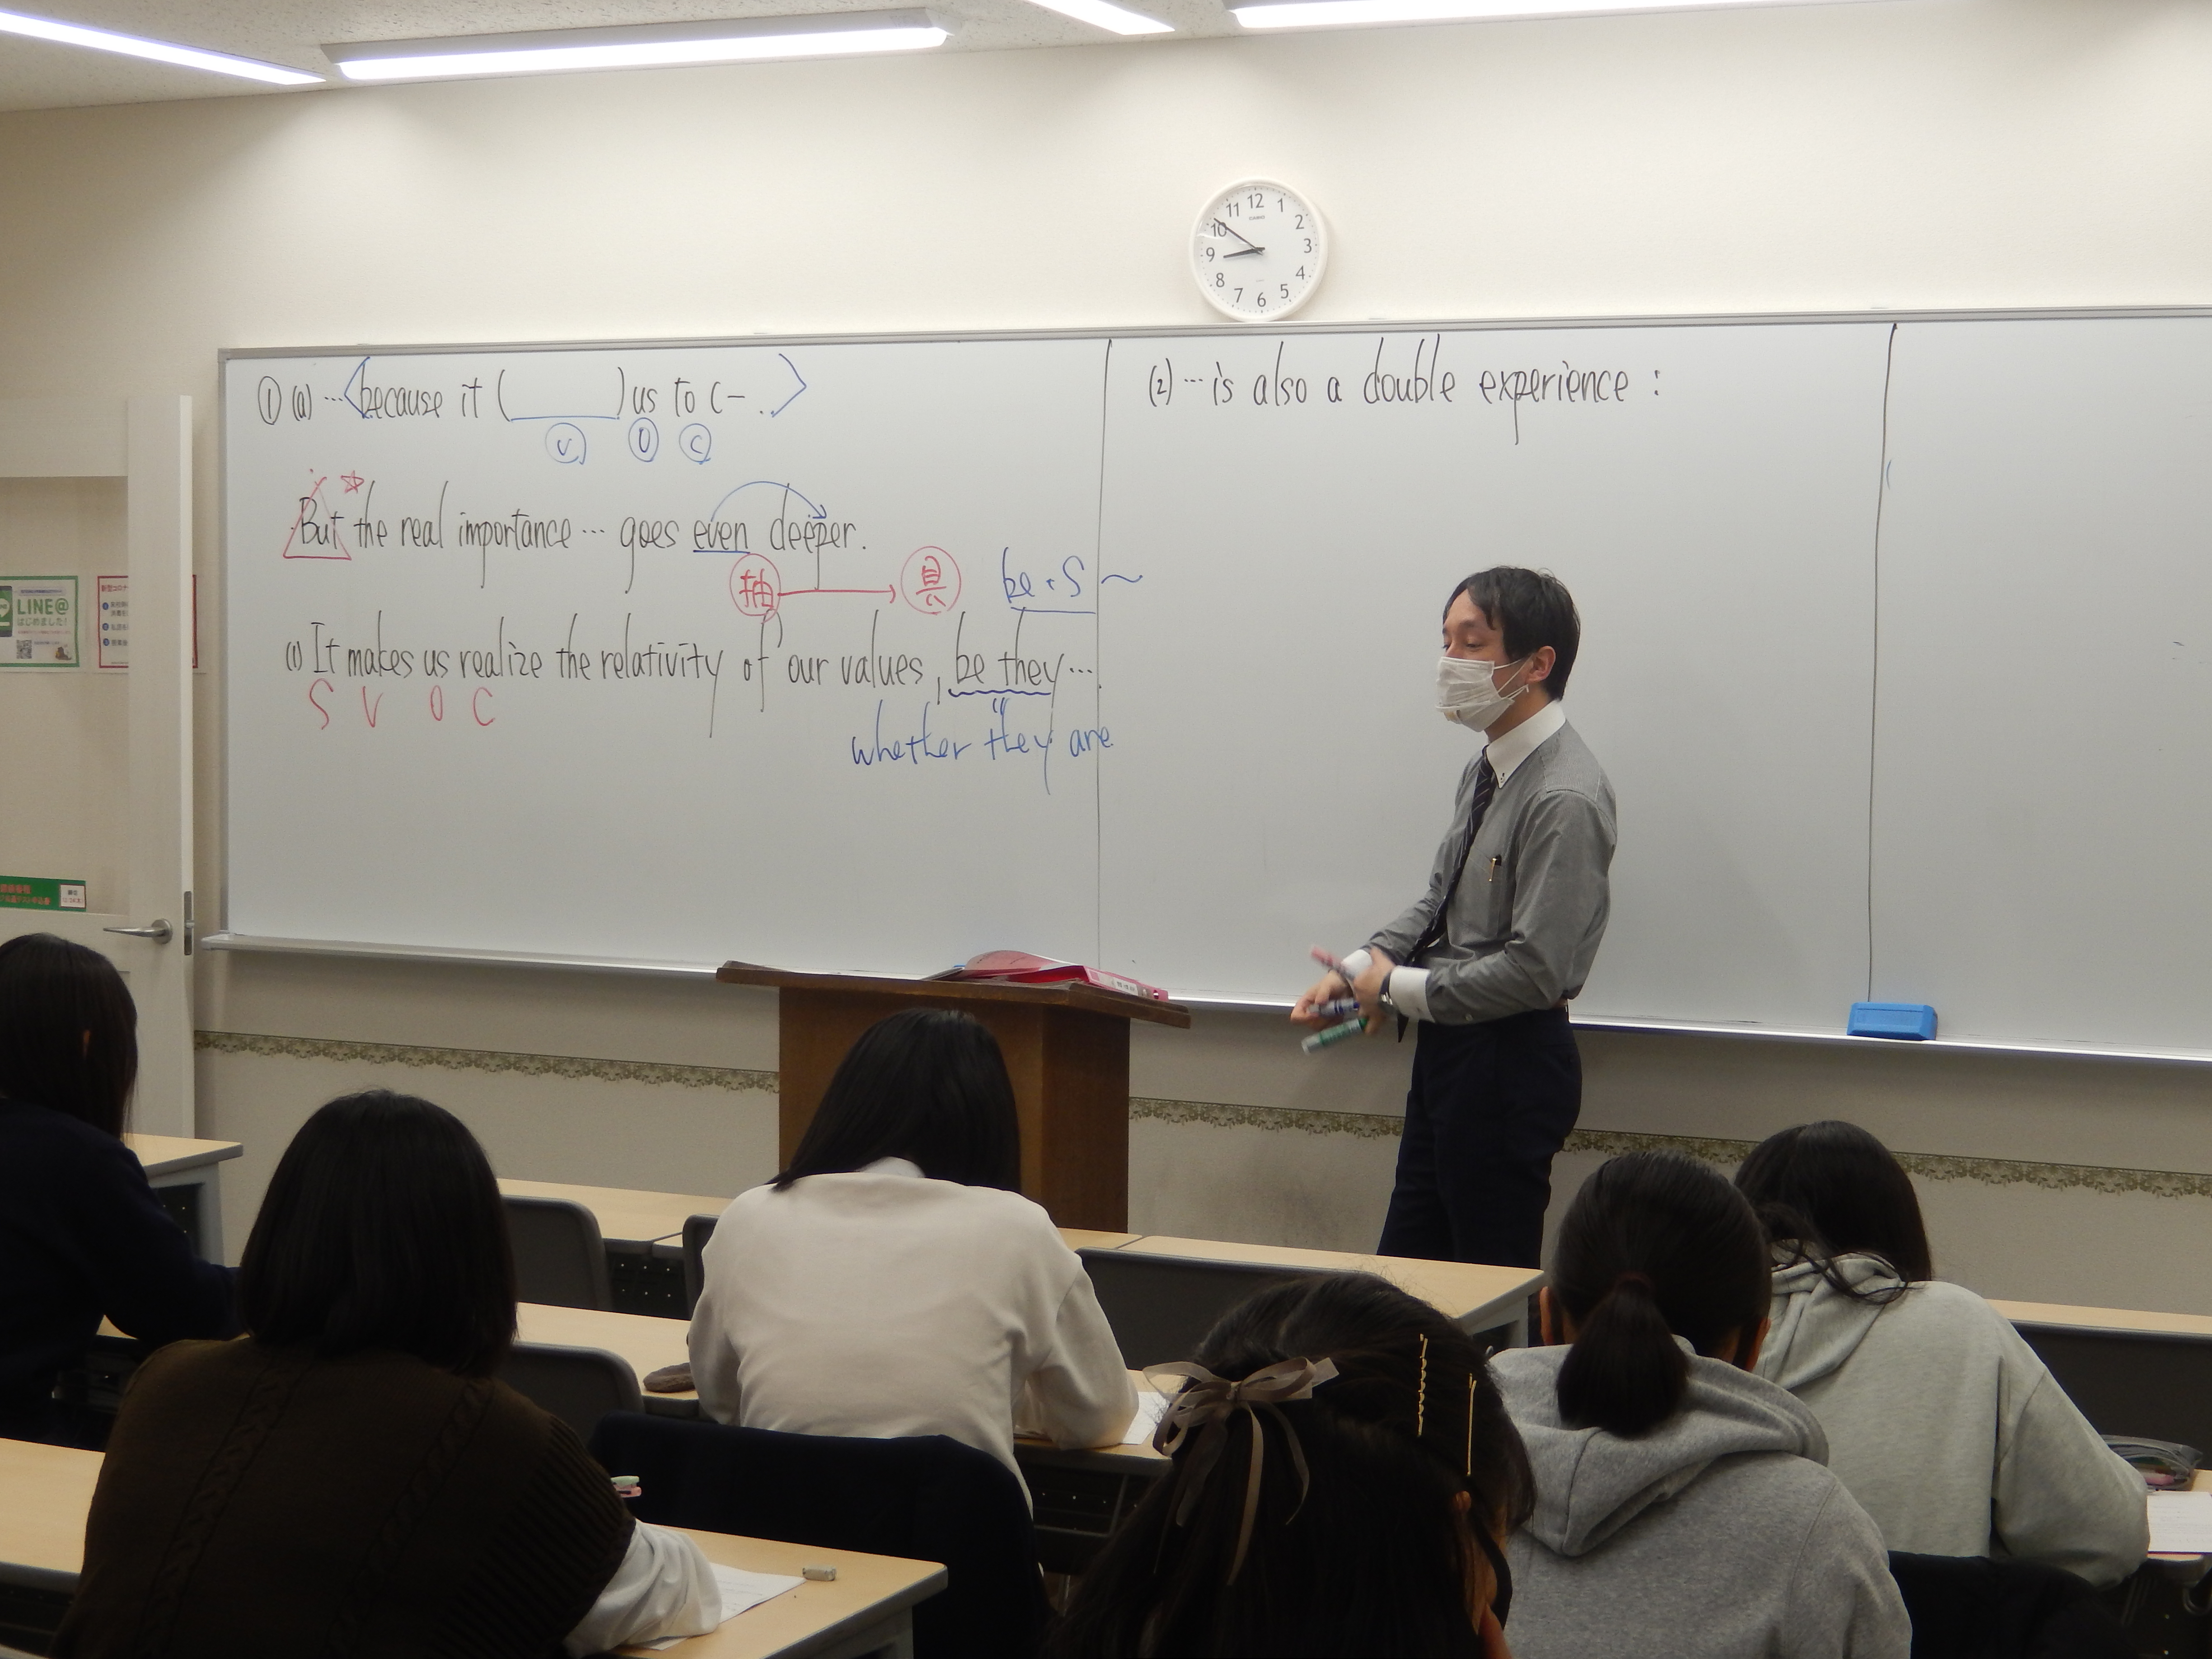 12
11 1
10 2
9 3
8 4
7 5
6
CASIO
① (a) … 〈because it (      ) us to (-..〉
Ⓥ Ⓞ Ⓒ
But the real importance … goes even deeper.
抽 → 具
be + S ~
(1) It makes us realize the relativity of our values, be they….
S V O C
whether they are
(2) … is also a double experience :
LINE@
はじめました!
新型コロナ